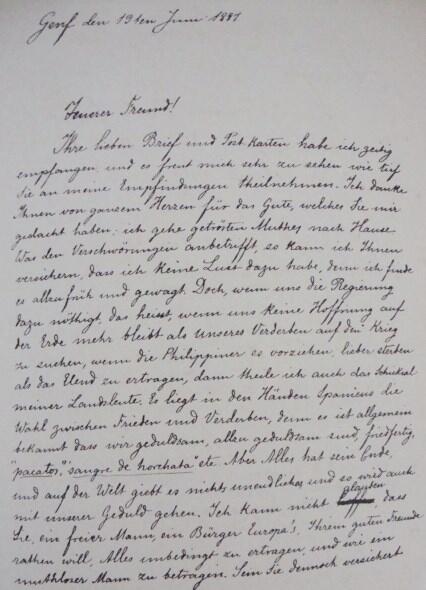 Genf den 19ten Juni 1887
Teuerer Freund!
Ihre lieben Brief und Post Karten habe ich zeitig
empfangen, und es freut mich sehr zu sehen wie tief
Sie an meine Empfindungen theilnehmen. Ich danke
Ihnen von ganzem Herzen für das Gute, welches Sie mir
gedacht haben; ich gehe getrösten Muthes nach Hause
Was den Verschwörungen anbetrifft, so kann ich Ihnen
versichern, dass ich keine Lust dazu habe, denn ich finde
es allzufrüh und gewagt. Doch, wenn uns die Regierung
dazu nöthigt, das heisst, wenn uns keine Hoffnung auf
der Erde mehr bleibt als unseres Verderben auf den Krieg
zu suchen, wenn die Philippiner es vorziehen, lieber sterben
als das Elend zu ertragen, dann theile ich auch das Schicksal
meiner Landsleute. Es liegt in den Händen Spaniens die
Wahl zwischen Frieden und Verderben, denn es ist allgemein
bekannt dass wir geduldsam, allzu geduldsam sind, friedfertig,
"pacatos", "sangre de horchata" etc. Aber Alles hat sein Ende,
und auf der Welt giebt es nichts unendliches und so wird auch
mit unserer Geduld gehen. Ich kann nicht glauben, dass
Sie, ein freier Mann, ein Bürger Europa's, Ihrem guten Freunde
rathen will, Alles unbedingt zu ertragen, und wie ein
muthloser Mann zu betragen. Sie dennoch versichert